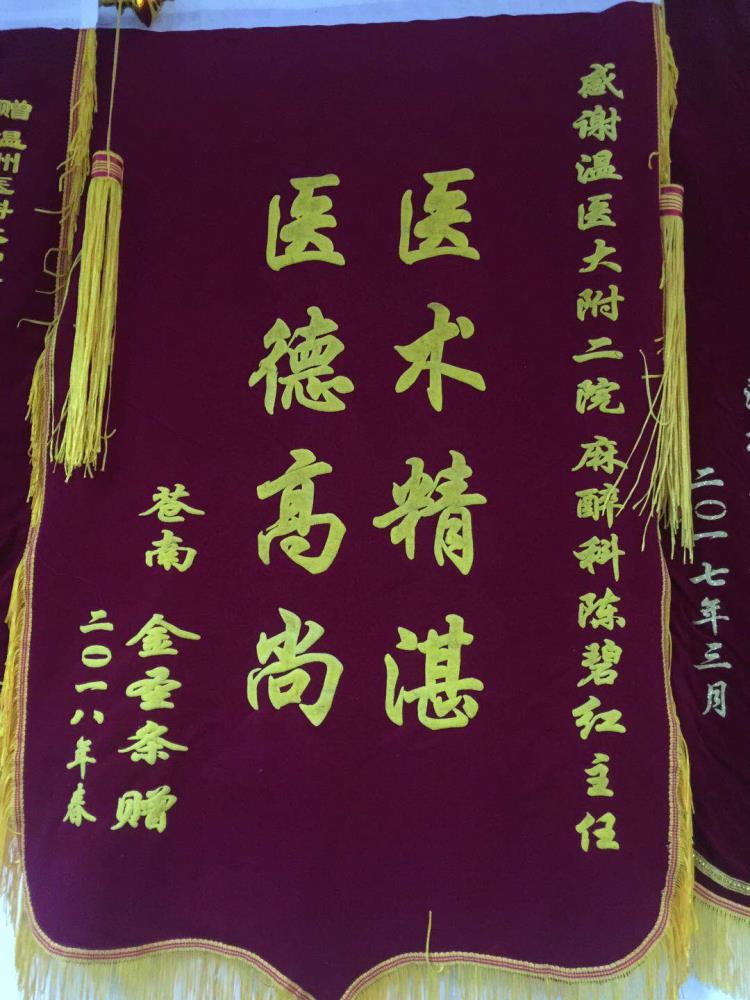 感谢温医大附二院麻醉科陈碧红主任
医术精湛
医德高尚
苍南 金圣条 赠
二〇一八年春
二〇一七年三月
赠温州医科